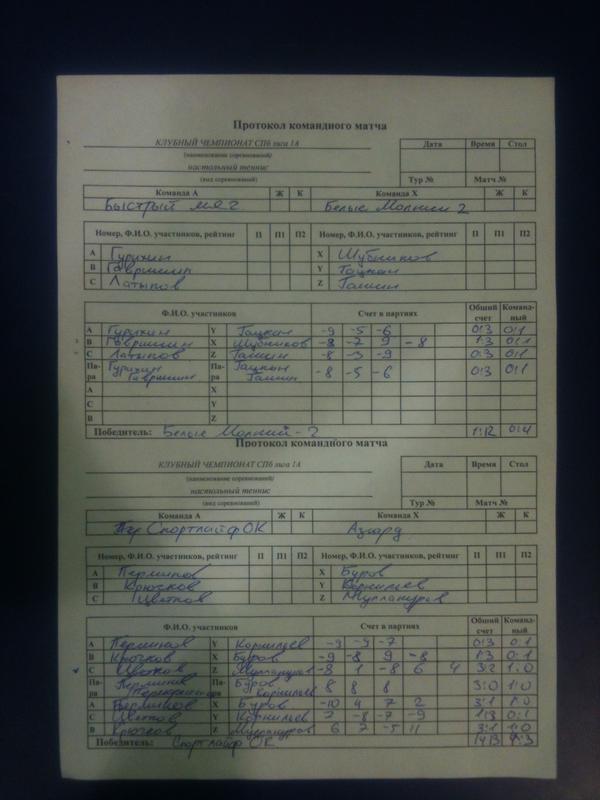 Протокол командного матча
КЛУБНЫЙ ЧЕМПИОНАТ СПб лига 1А Дата Время Стол
(наименование соревнований)
настольный теннис
(вид соревнования) Тур № Матч №
Команда А Ж К Команда Х Ж К
Быстрый мяч Белые Молнии 2
Номер, Ф.И.О. участников, рейтинг П П1 П2 Номер, Ф.И.О. участников, рейтинг П П1 П2
А Гурихин X Шубников
В Гавришин Y Тацкан
С Латыпов Z Тамин
Ф.И. участников Счет в партиях Общий счет Команд-ный
А Гурихин Y Тацкан -9 -5 -6 0:3 0:1
В Гавришин X Шубников -8 -7 9 -8 1:3 0:1
С Латыпов Z Тамин -8 -3 -9 0:3 0:1
Па-ра Гурихин Гавришин Па-ра Тацкан Тамин -8 -5 -6 0:3 0:1
А X
С Y
В Z
Победитель: Белые Молнии-2 1:12 0:4
Протокол командного матча
КЛУБНЫЙ ЧЕМПИОНАТ СПб лига 1А Дата Время Стол
(наименование соревнований)
настольный теннис
(вид соревнования) Тур № Матч №
Команда А Ж К Команда Х Ж К
СпортлайфОК Азард
Номер, Ф.И.О. участников, рейтинг П П1 П2 Номер, Ф.И.О. участников, рейтинг П П1 П2
А Перминов X Буров
В Крючков Y Корнильев
С Цветков Z Муллануров
Ф.И. участников Счет в партиях Общий счет Команд-ный
А Перминов Y Корнильев -9 -9 -7 0:3 0:1
В Крючков X Буров -9 -8 9 -8 1:3 0:1
С Цветков Z Муллануров -8 1 -8 6 4 3:2 1:0
Па-ра Перминов Па-ра Буров Корнильев 8 8 8 3:0 1:0
А Перминов X Буров -10 4 7 2 3:1 1:0
С Цветков Y Корнильев 7 -8 -7 -9 1:3 0:1
В Крючков Z Муллануров 6 7 -5 11 3:1 1:0
Победитель: Спортлайф ОК 14:13 4:3